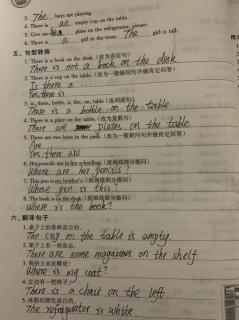 3. The boys are playing.
4. There is an empty cup on the table.
5. Give me the glass on the refrigerator, please.
6. There is a girl in the room. The girl is tall.
五、句型转换
1. There is a book on the desk. (改为否定句)
There is not a book on the desk
2. There is a cup on the table. (改为一般疑问句并做肯定回答)
Is there a
Yes there is
3. is, there, bottle, a, the, on, table (连词成句)
There is a bottle on the table
4. There is a plate on the table. (改为复数句)
There are plates on the table
5. There are two boys in the park. (改为一般疑问句并做肯定回答)
Are
Yes there are
6. Her pencils are in her schoolbag. (就画线部分提问)
Where are her pencils?
7. This pen is my brother's. (就画线部分提问)
Whose pen is this?
8. The book is on the desk. (就画线部分提问)
Where is the book?
六、翻译句子
1. 桌子上的茶杯是空的。
The cup on the table is empty.
2. 架子上有一些杂志。
There are some magazines on the shelf
3. 我的大衣在哪里?
Where is my coat?
4. 左边有一把椅子。
There is a chair on the left
5. 冰箱的颜色是白的。
The refrigerator is white